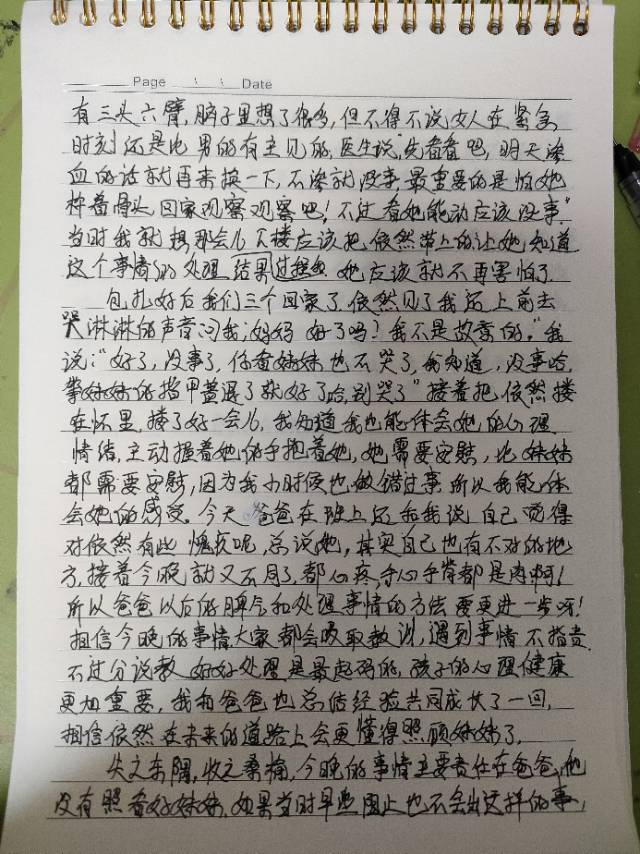 Page \ \ Date
有三头六臂,脑子里想了很多,但不得不说女人在紧急
时刻还是比男的有主见的,医生说"先看看吧,明天渗
血的话就再来换一下,不渗就没事,最重要的是怕她
榨着骨头,回家观察观察吧!不过看她能动应该没事"
当时我就想那会儿下楼应该把依然带上的让她知道
这个事情的处理结果过程她应该就不再害怕了.
包扎好后我们三个回家了依然见了我赶上前去
哭淋淋的声音问我:"妈妈 好了吗?我不是故意的。"我
说:"好了,没事了,你看妹妹也不哭了,我知道,没事哈,
等妹妹的指甲盖退了就好了哈,别哭了"接着把依然搂
在怀里,搂了好一会儿,我知道我也能体会她的心理
情绪,主动握着她的手抱着她,她需要安慰,比妹妹
都需要安慰,因为我小时候也做错过事所以我能体
会她的感受。今天爸爸在班上还和我说自己觉得
对依然有些愧疚呢,总说她,其实自己也有不对的地
方,接着今晚就又不同了,都心疼,手心手背都是肉啊!
所以爸爸以后的脾气和处理事情的方法要更进一步呀!
相信今晚的事情大家都会吸取教训,遇到事情不指责.
不过分说教 好好处理是最起码的,孩子的心理健康
更加重要,我和爸爸也总结经验共同成长了一回,
相信依然在未来的道路上会更懂得照顾妹妹了.
失之东隅,收之桑榆,今晚的事情主要责任在爸爸,他
没有照看好妹妹,如果当时早些阻止也不会出这样的事,